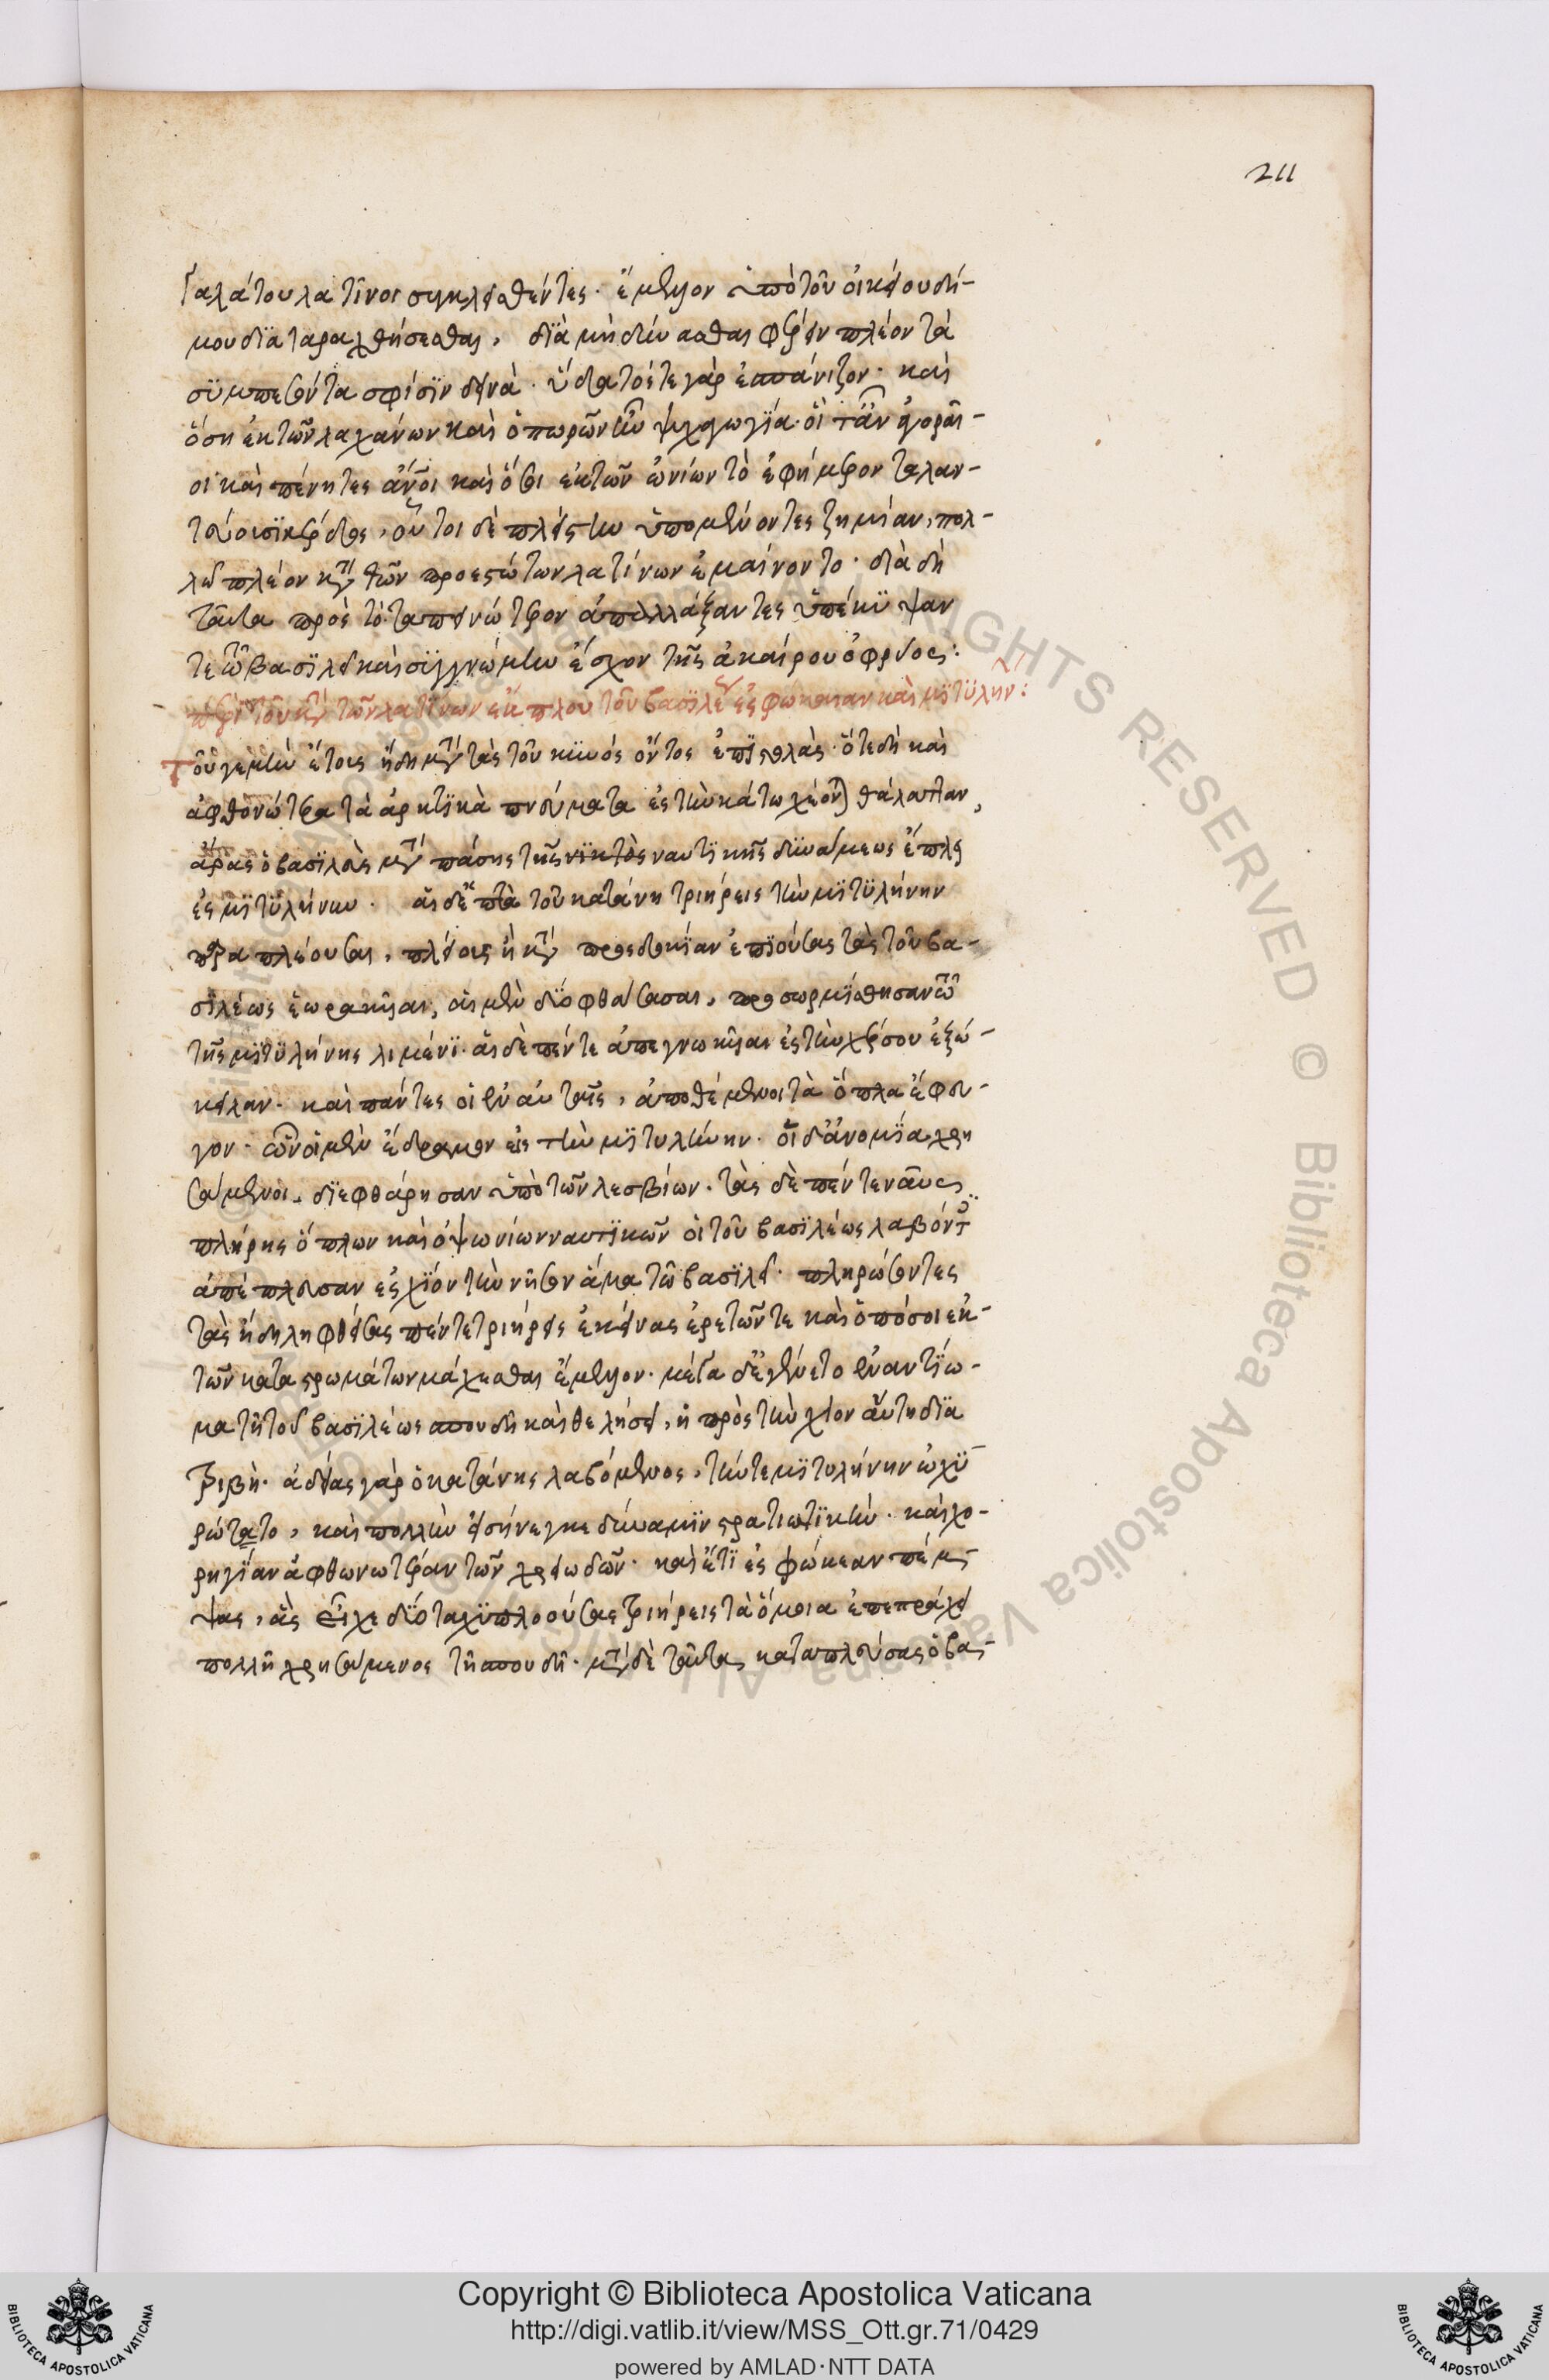 211
Γαλάτου λατῖνοι συγκλεισθέντες· ἔμελλον ὑπὸ τοῦ οἰκείου δή-
μου διαταραχθήσεσθαι, διὰ μὴ δύνασθαι φέρειν πλέον τὰ
συμπεσόντα σφίσιν δεινά· ὕδατός τε γὰρ ἐσπάνιζον· καὶ
ὅση ἐκ τῶν λαχάνων καὶ ὀπωρῶν ἦν ψυχαγωγία· οἵ τ' ἂν ἀγοραῖ-
οι καὶ πένητες ἄνοι καὶ ὅσοι ἐκ τῶν ὠνίων τὸ ἐφήμερον ταλαν-
τεύουσι κέρδος, οὗτοι δὲ πλείστην ὑπομένοντες ζημίαν, πολ-
λῶ πλέον κατὰ τῶν προεστώτων λατίνων ἐμαίνοντο· διὰ δὴ
ταῦτα πρὸς τὸ ταπεινότερον ἀπαλλάξαντες ὑπέκυψαν
τε τῶ βασιλεῖ καὶ συγγνώμην ἔσχον τῆς ἀκαίρου ὀφρύος:
περὶ τοῦ κατὰ τῶν λατίνων ἔκπλου τοῦ βασιλέως ἐς φώκαιαν καὶ μιτυλήν:
Τοῦ γε μὴν ἔτους ἤδη μετὰ τὰς τοῦ κυνὸς ὄντος ἐπιτολάς· ὅτε δὴ καὶ
ἀφθονώτερα τὰ ἀρκτικὰ πνεύματα ἐς τὴν κάτω χέονται θάλατταν,
ἄρας ὁ βασιλεὺς μετὰ πάσης τῆς νυκτὸς ναυτικῆς δυνάμεως ἔπλει
ἐς μιτυλήνην. αἱ δ' ἑπτὰ τοῦ κατάνη τριήρεις τὴν μιτυλήνην
παραπλέουσαι, πλείους ἢ κατὰ προσδοκίαν ἐπιούσας τὰς τοῦ βα-
σιλέως ἑωρακυῖαι, αἱ μὲν δύο φθάσασαι, προσωρμίσθησαν τῶ
τῆς μιτυλήνης λιμένι· αἱ δὲ πέντε ἀπεγνωκυῖαι ἐς τὴν χέρσον ἐξώ-
κειλαν· καὶ πάντες οἱ ἐν αὐταῖς, ἀποθέμενοι τὰ ὅπλα ἔφευ-
γον· ὧν οἱ μὲν ἔδραμον εἰς τὴν μιτυλήνην· οἱ δ' ἀνομία χρη
σάμενοι, διεφθάρησαν ὑπὸ τῶν λεσβίων. τὰς δὲ πέντε ναῦς
πλήρης ὅπλων καὶ ὀψωνίων ναυτικῶν οἱ τοῦ βασιλέως λαβόντες
ἀπέπλευσαν ἐς χίον τὴν νῆσον ἅμα τῶ βασιλεῖ· πληρώσοντες
τὰς ἤδη ληφθείσας πέντε τριήρεις ἐκείνας ἐρετῶν τε καὶ ὁπόσοι ἐκ
τῶν καταστρωμάτων μάχεσθαι ἔμελλον· μέγα δ' ἐγένετο ἐναντίω-
μα τῆ τοῦ βασιλέως σπουδῆ καὶ θελήσει, ἡ πρὸς τὴν χίον αὕτη δια
τριβή· ἀδείας γὰρ ὁ κατάνης λαβόμενος, τήν τε μιτυλήνην ὠχυ
ρώτατο, καὶ πολλὴν εἰσήνεγκε δύναμιν στρατιωτικήν· καὶ χο-
ρηγίαν ἀφθονωτέραν τῶν χρειωδῶν· καὶ ἔτι ἐς φώκεαν πέμ-
ψας, ἃς εἶχε δύο ταχυπλοούσας τριήρεις τὰ ὅμοια ἐπεπράχει
πολλῆ χρησάμενος τῆ σπουδῆ. μετὰ δὲ ταῦτα, καταπλεύσας ὁ βασ-
Copyright © Biblioteca Apostolica Vaticana
http://digi.vatlib.it/view/MSS_Ott.gr.71/0429
powered by AMLAD·NTT DATA